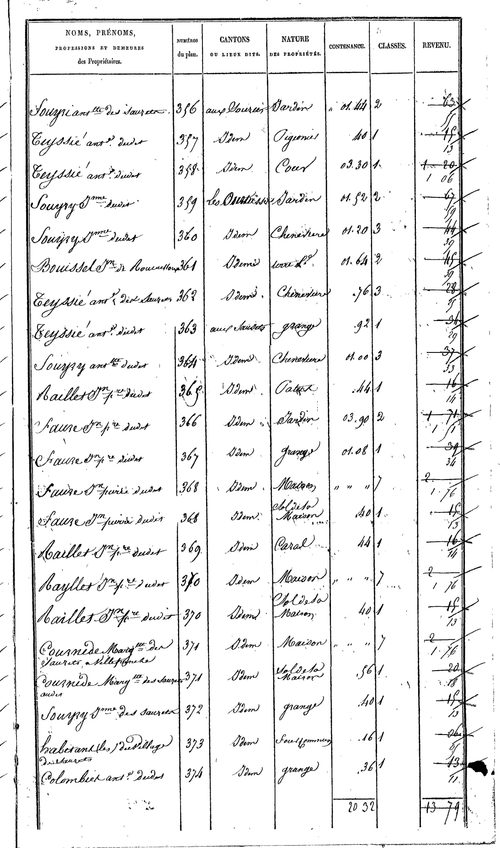 NOMS, PRÉNOMS, PROFESSIONS ET DEMEURES des Propriétaires. NUMÉROS du plan. CANTONS OU LIEUX DITS. NATURE DES PROPRIÉTÉS. CONTENANCE. CLASSES. REVENU.
Souyri antne des Saurets 356 aux Jardin 01.44 2 63
Teyssié ant. dudit 357 Idem Pigeonié 40 1 15 13
Teyssié ant. dudit 358 Idem Cour 03.30 1 1 20 1 06
Souyry Jme dudit 359 les Jardin 01.52 2 67 59
Souyry Jme dudit 360 Idem Cheneviere 01.20 3 44 39
Bouissel Jn de 361 Idem 01.64 2 45 39
Teyssié ant. des Saurets 362 Idem Cheneviere .76 3 28
Teyssié ant. dudit 363 aux Saurets grange .92 1
Souyry antne dudit 364 Idem Cheneviere 01.00 3 37 33
Raillet Jn pre dudit 365 Idem Patus .44 1 16 14
Faure Jn pre dudit 366 Idem Jardin 03.90 2 1 71
Faure Jn pre dudit 367 Idem grange 01.08 1 39 34
Faure Jn pierre dudit 368 Idem Maison " " " 7 2 1 76
Faure Jn pierre dudit 368 Idem Sol de la Maison .40 1 15 13
Raillet Jn pre dudit 369 Idem Cazal 44 1 16 14
Rayllet Jn pre dudit 370 Idem Maison " " " 7 2 1 76
Raillet Jn pre dudit 370 Idem Sol de la Maison 40 1 15 13
Cournède Margte des Saurets, a Villefranche 371 Idem Maison " " " 7 2 1 76
Cournède Margte des Saurets audit 371 Idem Sol de la Maison .56 1 20 18
Souyry Jme des Saurets 372 Idem grange .40 1 15 13
habitants (les) du Village des Saurets 373 Idem Four Commun .16 1 06
Colombiés ant. dudit 374 Idem grange .36 1 13 11
20 32 13 79